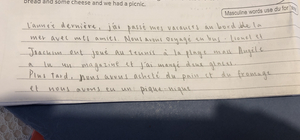 bread and some cheese and we had a picnic.
Masculine words use du for
L'année dernière, j'ai passé mes vacances au bord de la
mer avec mes amis. Nous avons voyagé en bus. Lionel et
ont joué au tennis à la plage mais Angèle
a lu un magazine et j'ai mangé deux glaces
Plus tard, nous avons acheté du pain et du fromage
et nous avons eu un pique-nique